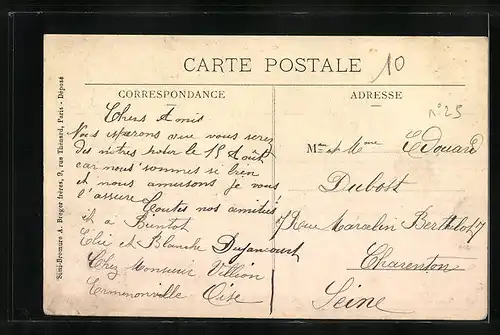 CARTE POSTALE
10
CORRESPONDANCE
Chers Amis
Nous esperons que vous serez
des nôtres pour le 15 Août
car nous sommes si bien
et nous amusons je vous
l'assure Toutes nos amitiés
et à Bientot
Elie et Blanche Dujancourt
Chez Monsieur Villion
Ermenonville Oise
ADRESSE
n° 25
Mr et Mme Edouard
Dubost
7 Rue Marcelin Berthelot 7
Charenton
Seine
Simi-Bromure A. Breger frères, 9, rue Thénard, Paris - Déposé